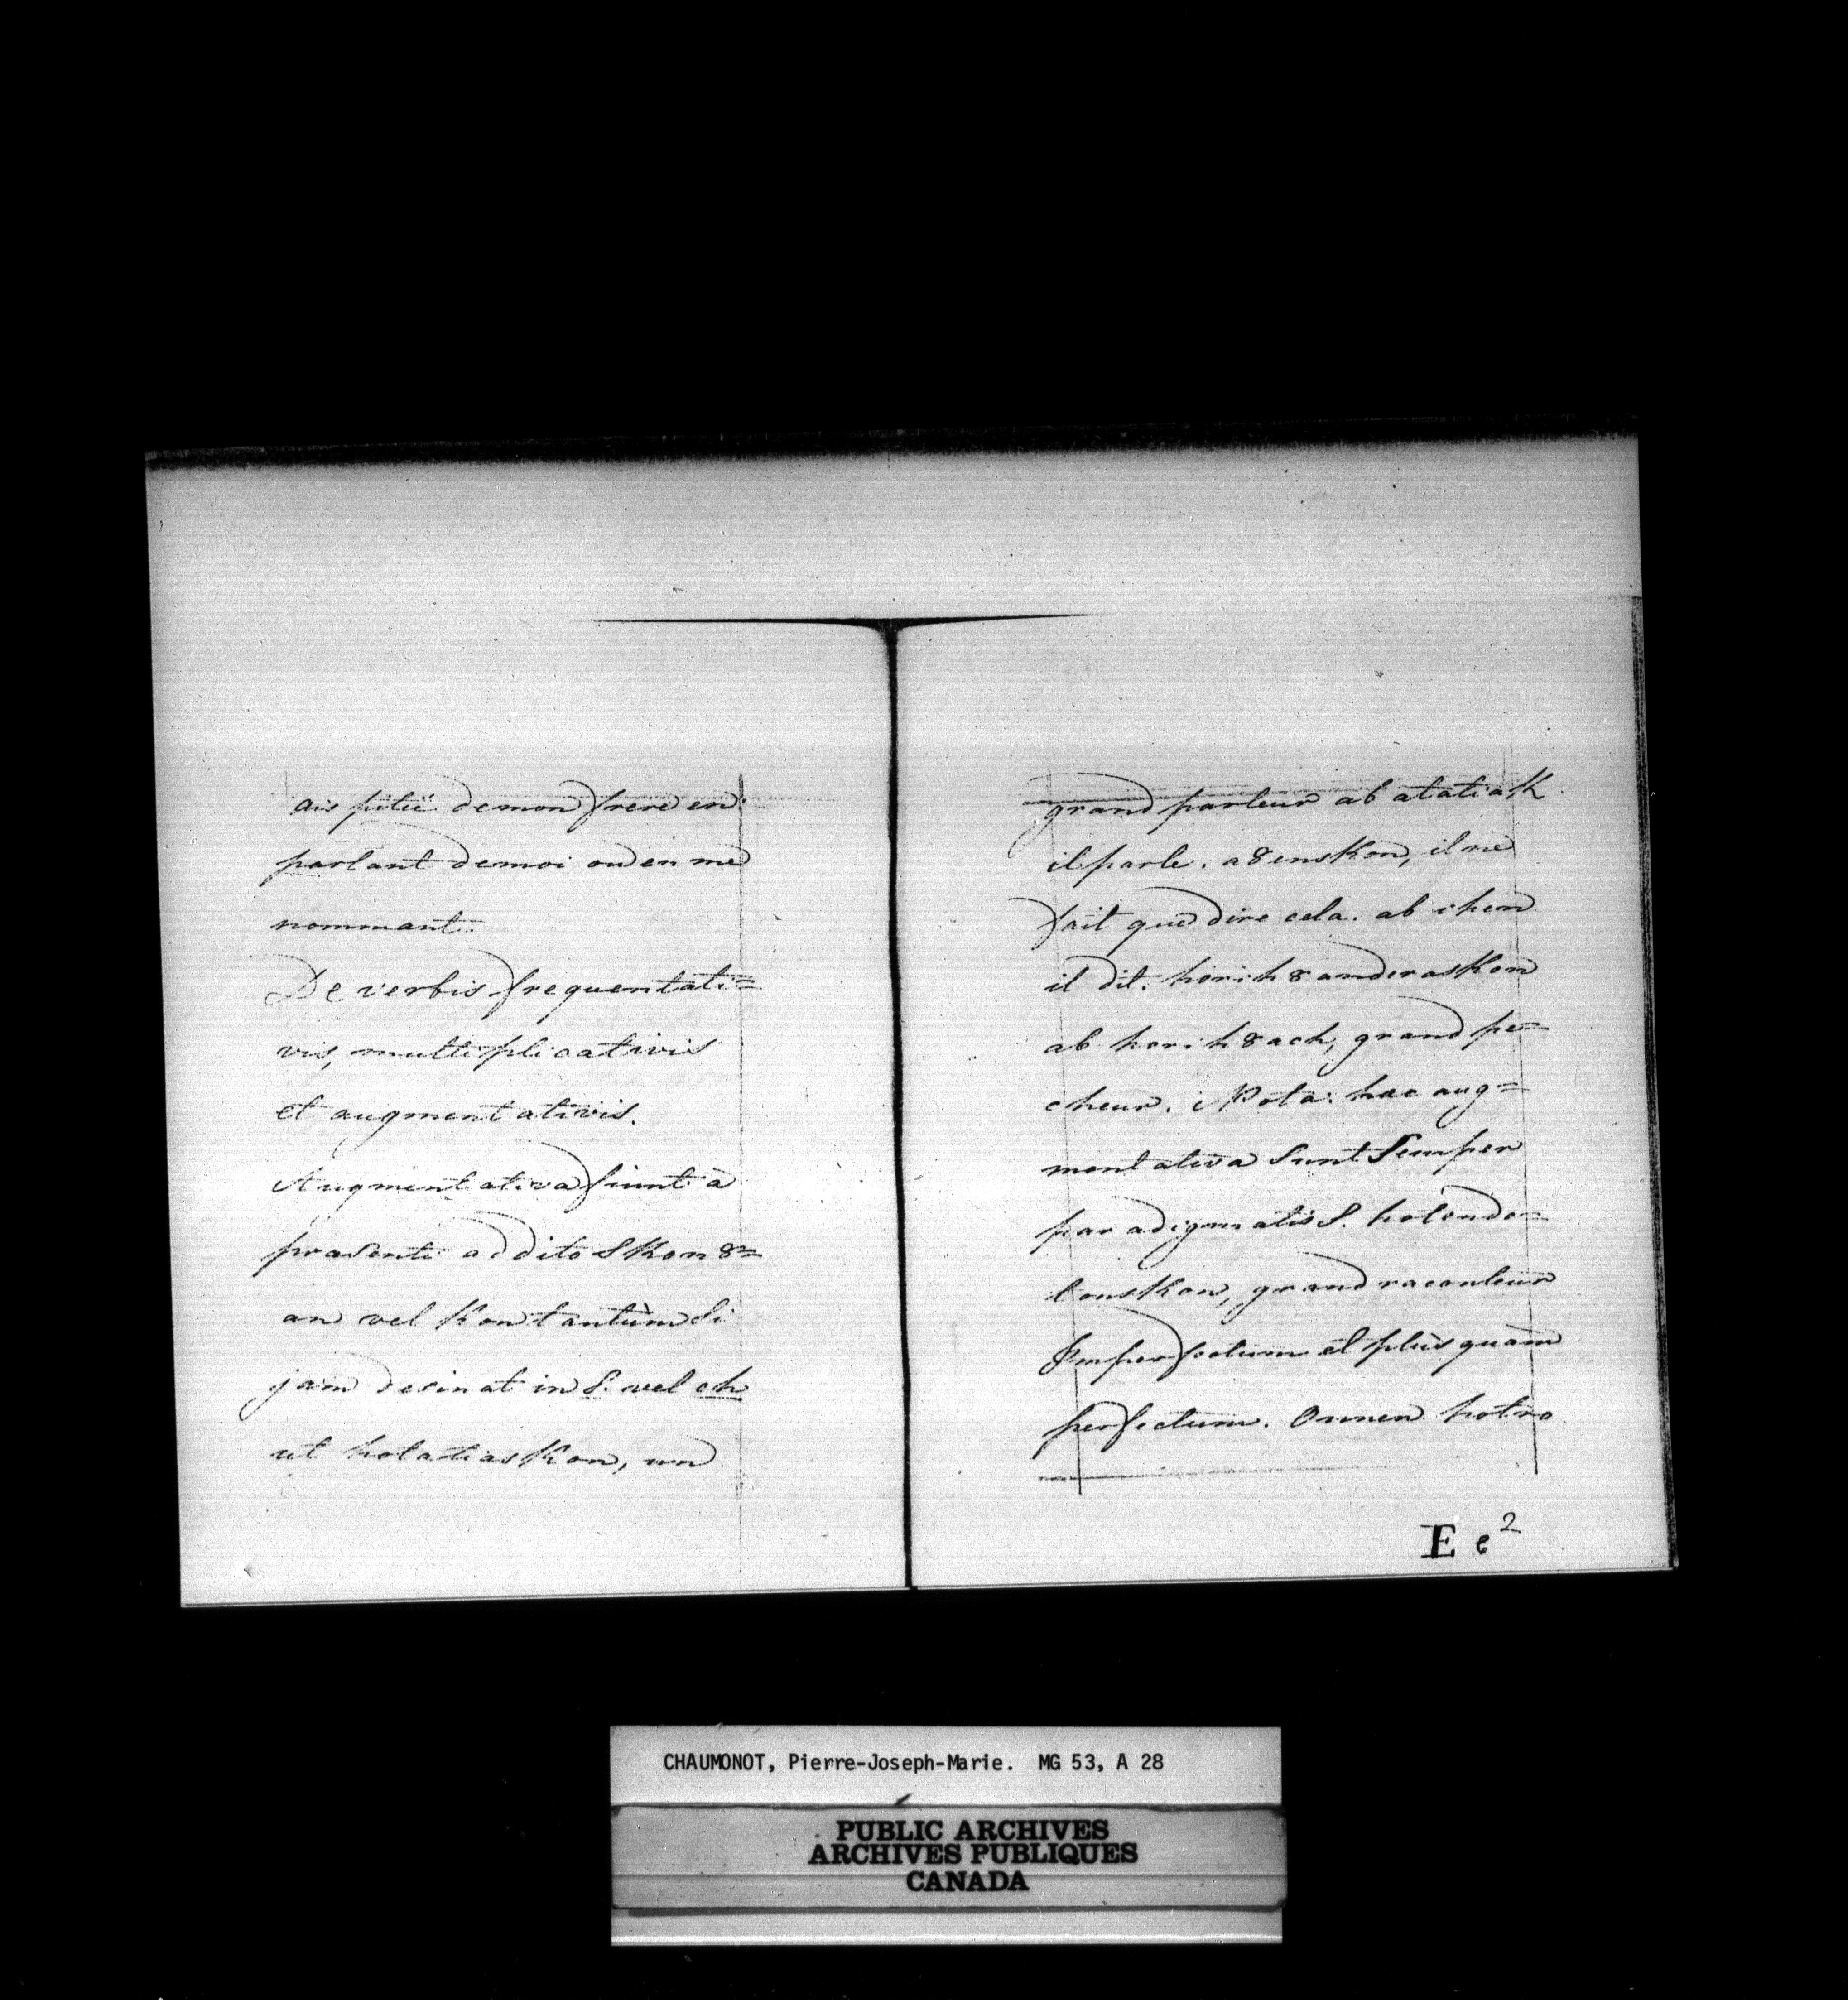 ais pitié demon frere en
parlant demoi ou en me
nommant.
De verbis frequentati=
vis, multiplicativis
et augmentativis.
Augmentativa fiunt à
prasenti addito Skon 8=
an vel Kon tantùm si
jam desinat in S. vel ch
ut hotatiaskon, un
grand parleur ab atatiak
il parle. a8enskon, il ne
fait que dire cela. ab ihen
il dit. horih8anderaskon
ab horih8ach, grand pe=
cheur. Nota: hac aug=
mentativa sunt Semper
paradigmatis S. hotendo=
tonskon, grand raconteur
Imperfectum et plùsquam
perfectum. Onnen hotro
E e 2
CHAUMONOT, Pierre-Joseph-Marie. MG 53, A 28
PUBLIC ARCHIVES
ARCHIVES PUBLIQUES
CANADA